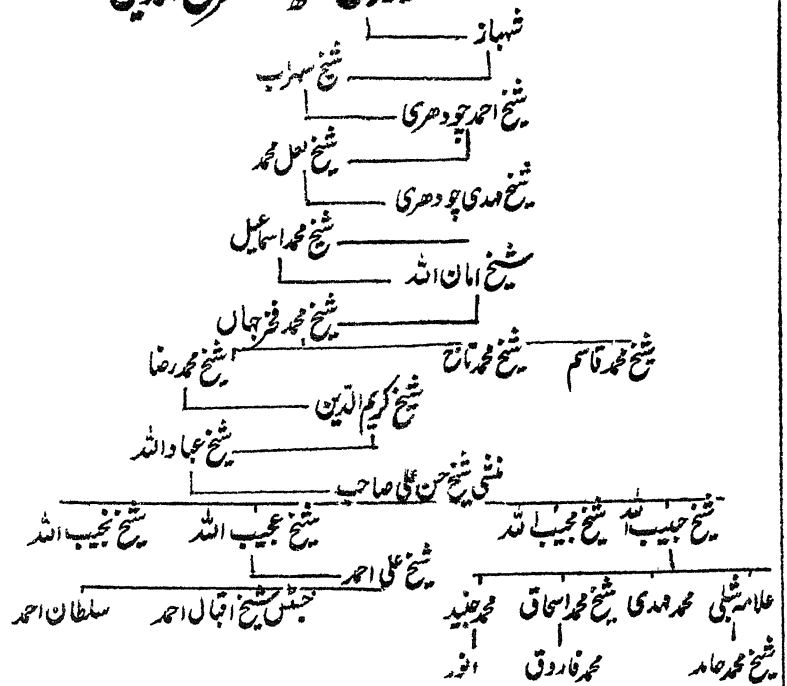 شہباز
شیخ سہراب
شیخ احمد چودھری
شیخ لعل محمد
شیخ مہدی چودھری
شیخ محمد اسماعیل
شیخ امان اللہ
شیخ محمد فخر جہاں
شیخ محمد قاسم شیخ محمد تاج شیخ محمد رضا
شیخ کریم الدین
شیخ عباد اللہ
منشی شیخ حسن علی صاحب
شیخ حبیب اللہ شیخ مجیب اللہ شیخ عجیب اللہ شیخ نجیب اللہ
شیخ علی احمد
علامہ شبلی محمد مہدی شیخ محمد اسحاق محمد جنید جسٹس شیخ اقبال احمد سلطان احمد
شیخ محمد حامد محمد فاروق انور